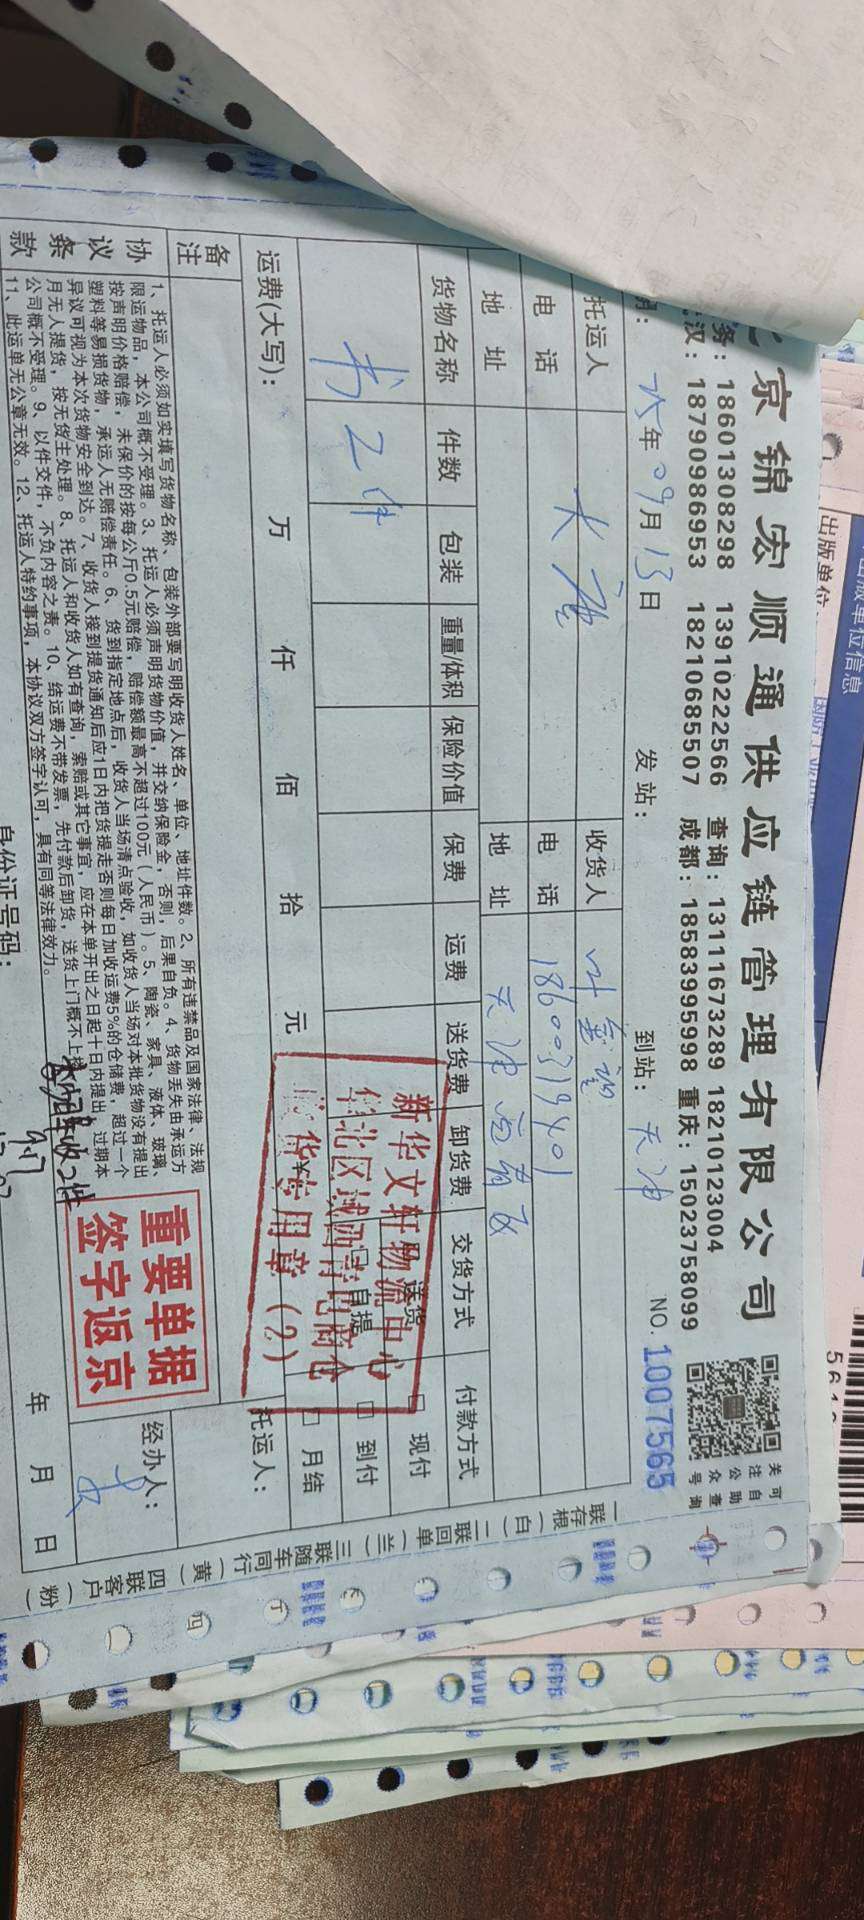 京锦宏顺通供应链管理有限公司
务：18601308298 13910222566 查询：13111673289 18210123004
汉：18790986953 18210685507 成都：18583995998 重庆：15023758099
关注公众号
可自助查询
25年09月13日 发站： 到站：天津 NO.1007565
托运人 大唐 收货人
电话 电话 18600319401
地址 地址 天津西青区
货物名称 件数 包装 重量/体积 保险价值 保费 运费 送货费 卸货费 交货方式 付款方式
书 2件
送货 □现付
□自提 □到付
□月结
运费(大写)： 万 仟 佰 拾 元
新华文轩物流中心
华北区域西青电商仓
收货专用章（2）
备注
托运人：
协议条款
1、托运人必须如实填写货物名称、包装外部要写明收货人姓名、单位、地址件数。2、所有违禁品及国家法律、法规
限运物品，本公司概不受理。3、托运人必须声明货物价值，并交纳保险金，否则，后果自负。4、货物丢失由承运方
按声明价格赔偿，未保价的按每公斤0.5元赔偿，赔偿额最高不超过100元（人民币）。5、陶瓷、家具、液体、玻璃、
塑料等易损货物，承运人无赔偿责任。6、货到指定地点后，收货人当场清点验收，如收货人当场对本批货物没有提出
异议可视为本次货物安全到达。7、收货人接到提货通知后应1日内把货提走否则每日加收运费5%的仓储费，超过一个
月无人提货，按无货主处理。8、托运人和收货人如有查询，索赔或其它事宜，应在本单开出之日起十日内提出，过期本
公司概不受理。9、以件交件，不负内容之责。10、结运费不带发票，先付款后卸货，送货上门概不上楼
11、此运单无公章无效。12、托运人特约事项，本协议双方签字认可，具有同等法律效力。
重要单据
签字返京
经办人：
收2件
身份证号码：
年 月 日
一联存根（白）二联回单（兰）三联随车同行（黄）四联客户（粉）
出版单位信息
出版单位